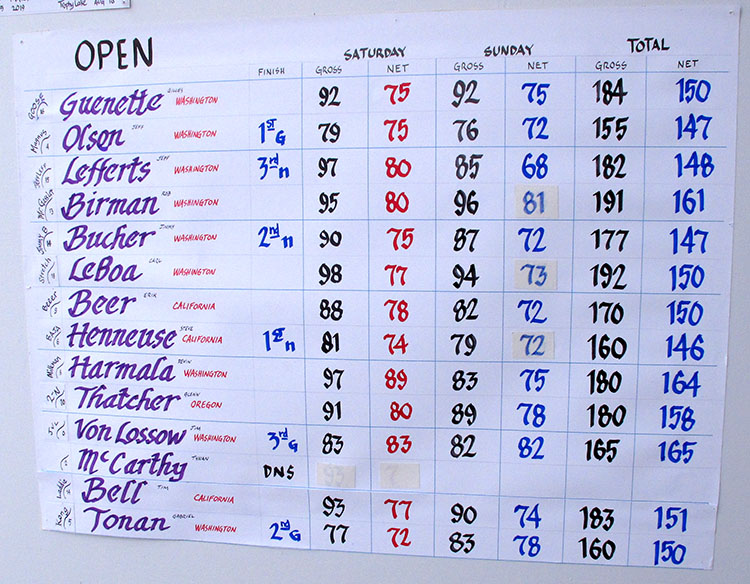 2019 Topsy Lake AUG 18
OPEN
SATURDAY SUNDAY TOTAL
FINISH GROSS NET GROSS NET GROSS NET
GOOSE Guenette GILLES WASHINGTON 92 75 92 75 184 150
Magnus 4 Olson JEFF WASHINGTON 1st G 79 75 76 72 155 147
Lefferts JEFF WASHINGTON 3rd n 97 80 85 68 182 148
Birman ROB WASHINGTON 95 80 96 81 191 161
Bucher JIMMY WASHINGTON 2nd n 90 75 87 72 177 147
Stretch LeBoa CARL WASHINGTON 98 77 94 73 192 150
Beer ERIK CALIFORNIA 88 78 82 72 170 150
BAJA Henneuse STEVE CALIFORNIA 1st n 81 74 79 72 160 146
Harmala KEVIN WASHINGTON 97 89 83 75 180 164
Thatcher GLENN OREGON 91 80 89 78 180 158
Von Lossow TIM WASHINGTON 3rd G 83 83 82 82 165 165
McCarthy DNS 93 ?
Bell TIM CALIFORNIA 93 77 90 74 183 151
Tonan GABRIEL WASHINGTON 2nd G 77 72 83 78 160 150